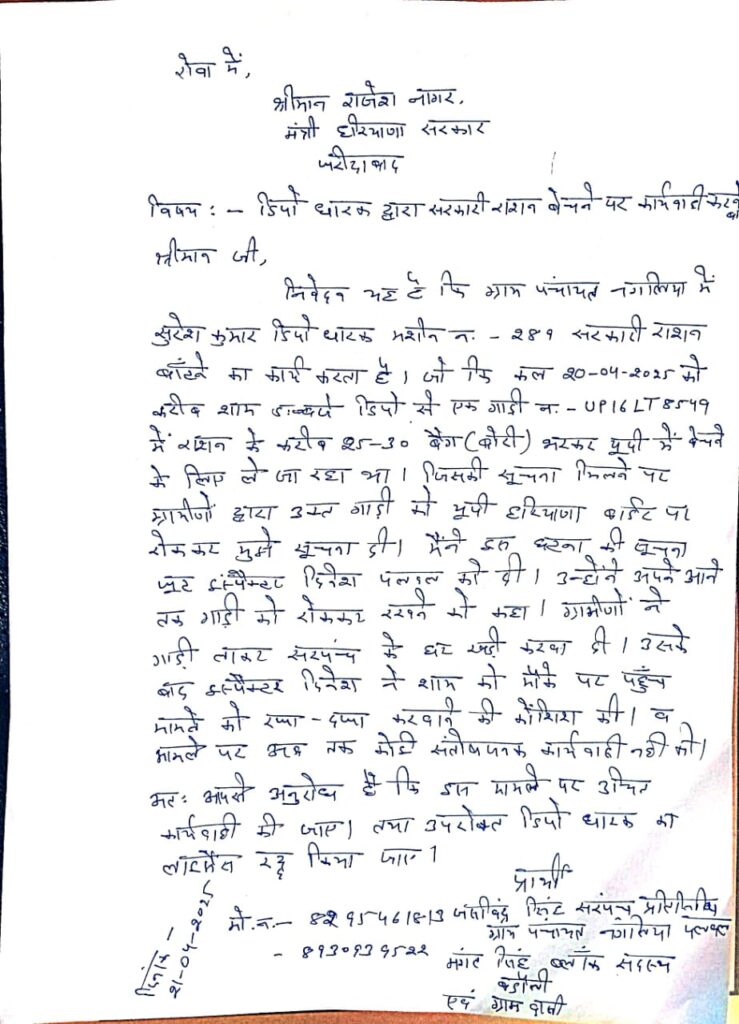 सेवा में,
श्रीमान राजेश नागर,
मंत्री हरियाणा सरकार
फरीदाबाद
विषय : - डिपो धारक द्वारा सरकारी राशन बेचने पर कार्यवाही करने बा
श्रीमान जी,
निवेदन यह है कि ग्राम पंचायत नगलिया में
सुरेश कुमार डिपो धारक मशीन न. - 289 सरकारी राशन
बाँटने का कार्य करता है। जो कि कल 20-04-2025 को
करीब शाम बजे डिपो से एक गाड़ी न. - UP16LT8549
में राशन के करीब 25-30 बैग (बोरी) भरकर यूपी में बेचने
के लिए ले जा रहा था। जिसकी सूचना मिलने पर
ग्रामीणों द्वारा उस गाड़ी को यूपी हरियाणा बार्डर पर
रोककर मुझे सूचना दी। मैंने इस घटना की सूचना
फूट इंस्पैक्टर दिनेश पलवल को दी। उन्होंने अपने आने
तक गाड़ी को रोककर रखने को कहा। ग्रामीणों ने
गाड़ी लाकर सरपंच के घर खड़ी करवा दी। उसके
बाद इंस्पैक्टर दिनेश ने शाम को मौके पर पहुँच
मामले को रफा-दफा करवाने की कोशिश की। व
मामले पर अब तक कोई संतोषजनक कार्यवाही नही की।
अतः आपसे अनुरोध है कि इस मामले पर उचित
कार्यवाही की जाए। तथा उपरोक्त डिपो धारक का
लाइसैंस रद्द किया जाए।
प्रार्थी
मो. न. - 8295461813 सिंह सरपंच प्रतिनिधि
ग्राम पंचायत नगलिया पलवल
- 8930939522 मंगत सिंह ब्लॉक सदस्य
बडौली
एवं ग्राम वासी
दिनांक -
21-04-2025